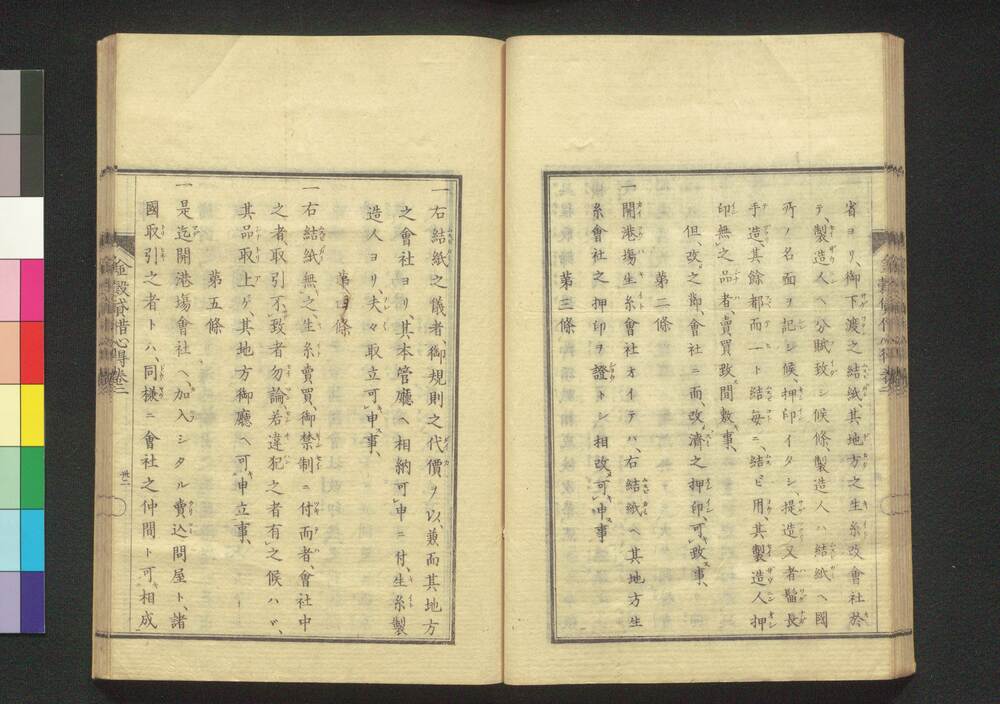 省ヨリ、御下渡之結紙其地方之生糸改會社於
テ、製造人ヘ分賦致シ候條製造人ハ結紙ヘ國
所ノ名面ヲ記シ候、押印イタシ、提造又者鬚長
手造、其餘都而一ト結毎ニ、結ビ用、其製造人押
印無之品者、賣買致間敷事、
但、改之節、會社ニ而、改濟之押印、可致事、
第二條
一開港塲生糸會社オイテハ、右結紙ヘ其地方生
糸會社之押印ヲ證トシ、相改可申事
第三條
一右結紙之儀者、御規則之代價ヲ以、兼而其地方
之會社ヨリ、其本管廳ヘ相納可申ニ付、生糸製
造人ヨリ、夫々取立可申事、
第四條
一右結紙無之生糸賣買、御禁制ニ付而者、會社中
之者、取引不致者勿論若違犯之者有之候ハヾ、
其品取上ゲ、其地方御廳ヘ可申立事、
第五條
一是迄開港塲會社ヘ、加入シタル賣込問屋ト、諸
國取引之者トハ、同樣ニ會社之仲間ト可相成
金穀貸借心得 卷二
卅二